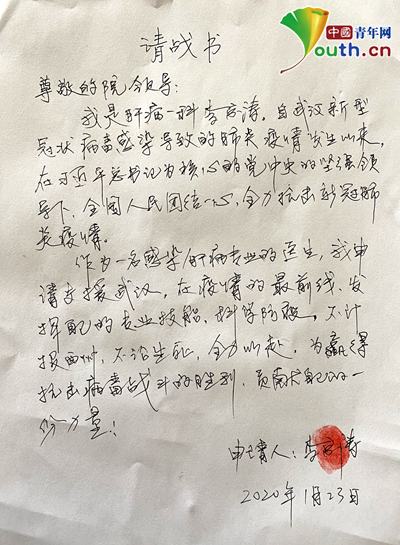 中國青年网
Youth.cn
请战书
尊敬的院领导:
我是肝病一科李 涛,自武汉新型
冠状病毒感染导致的肺炎疫情发生以来,
在习近平总书记为核心的党中央的坚强领
导下,全国人民团结一心,全力抗击新冠肺
炎疫情。
作为一名感染/肝病专业的医生,我申
请支援武汉,在疫情的最前线,发
挥自己的专业技能,科学防控,不计
报酬,不论生死,全力以赴,为赢得
抗击病毒战斗的胜利,贡献自己的一
份力量!
申请人:李 涛
2020年1月23日